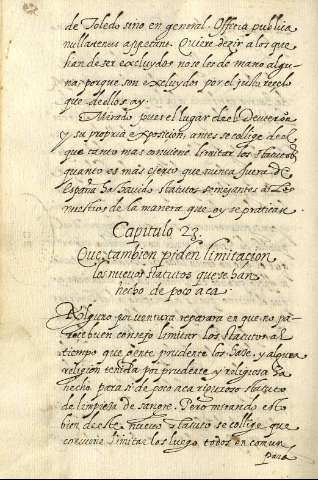 de Toledo sino en general. Officia publica
nullatenus appetant. Quiere dezir a los que
han de ser excluydos no se les dé mano algu
na, porque son excluydos por el justo recelo
que dellos ay.
Mirado pues el lugar del Deuteron.
y su propria exposicion, antes se collige del
que tanto mas conviene limitar los statutos
quanto es mas cierto que nunca fuera de
españa ha havido statutos semejantes a los
nuestros de la manera que oy se pratican.
Capitulo 23.
Que tambien piden limitacion
los nuevos statutos que se han
hecho de poco aca.
Alguno por ventura reparara en que no pa
rece buen consejo limitar los statutos al
tiempo que gente prudente los hase, y alguna
religion tenida por prudente y religiosa ha
hecho para si de poco aca riguroso statuto
de limpiesa de sangre. Pero mirando esto
bien deste nuevo statuto se collige que
conviene limitar los luego todos en comun
para